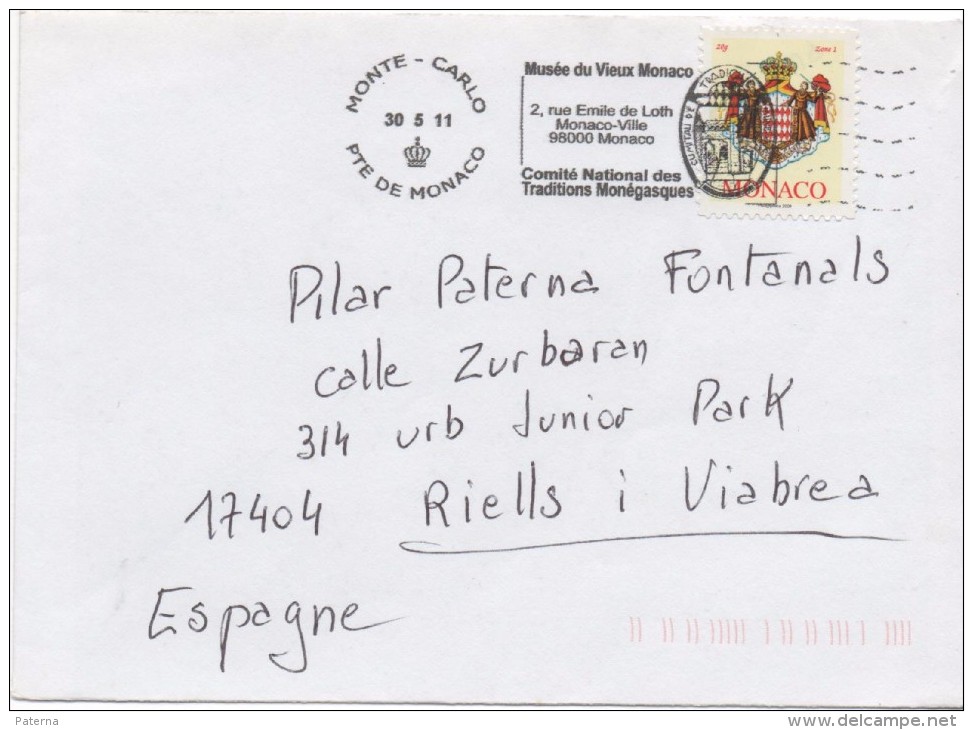 MONTE - CARLO
30 5 11
PTE DE MONACO
Musée du Vieux Monaco
2, rue Emile de Loth
Monaco-Ville
98000 Monaco
Comité National des
Traditions Monégasques
20g Zone 1
MONACO
Pilar Paterna Fontanals
calle Zurbaran
314 urb Junior Park
17404 Riells i Viabrea
Espagne
Paterna
delcampe.net